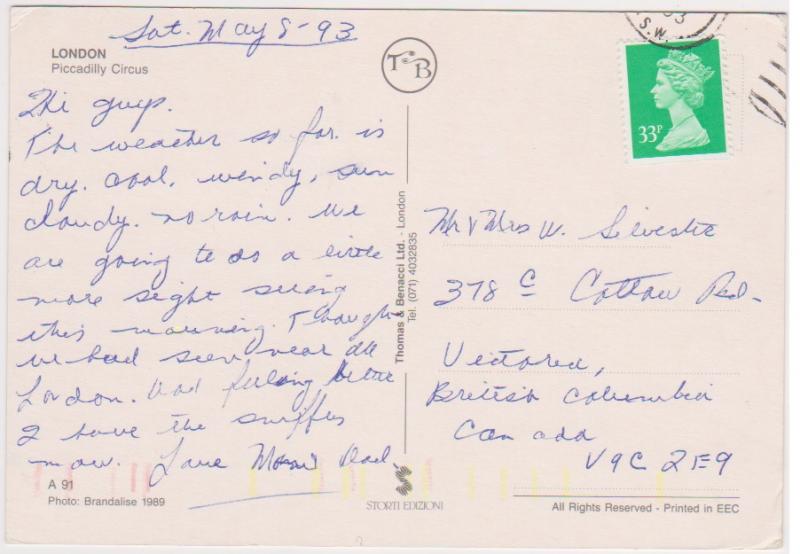 Sat. May 8-93
LONDON
Piccadilly Circus
TCB
S.W.
33P
Hi guys.
The weather so far is
dry. cool, windy, sun
cloudy. no rain. We
are going to do a little
more sight seeing
this mourning. Thought
we had seen near all
London. Dad feeling better
I have the sniffles
now. Love Mom Dad.
A 91
Photo: Brandalise 1989
Thomas & Benacci Ltd. - London
Tel. (071) 4032835
STORTI EDIZIONI
Mr & Mrs W. Silvestre
378 C Cottow Rd.
Victoria,
British Columbia
Canada
V9C 2E9
All Rights Reserved - Printed in EEC